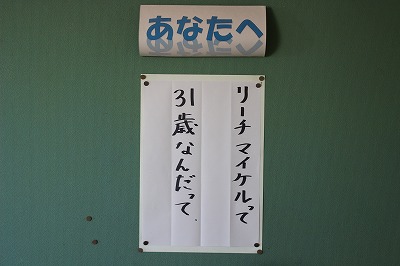 あなたへ
リーチ マイケルって
31歳なんだって